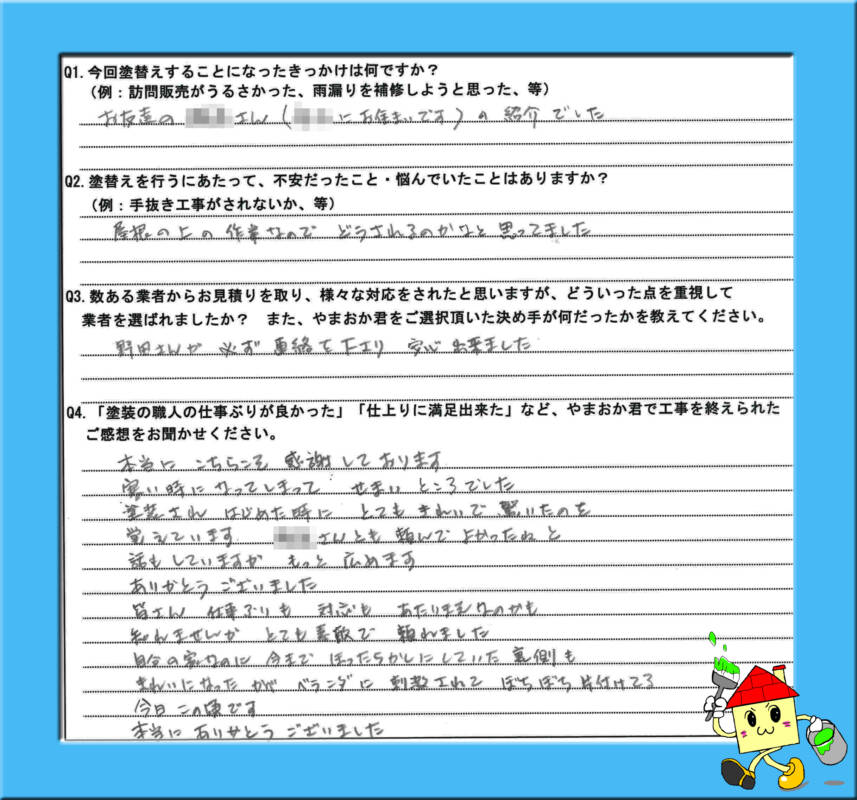 Q1. 今回塗替えすることになったきっかけは何ですか？
（例：訪問販売がうるさかった、雨漏りを補修しようと思った、等）
お友達の さん（ にお住まいです）の 紹介でした
Q2. 塗替えを行うにあたって、不安だったこと・悩んでいたことはありますか？
（例：手抜き工事がされないか、等）
屋根の上の 作業なので どうされるのかなと 思ってました
Q3. 数ある業者からお見積りを取り、様々な対応をされたと思いますが、どういった点を重視して
業者を選ばれましたか？ また、やまおか君をご選択頂いた決め手が何だったかを教えてください。
野田さんが 必ず 連絡を下さり 安心 出来ました
Q4. 「塗装の職人の仕事ぶりが良かった」「仕上りに満足出来た」など、やまおか君で工事を終えられた
ご感想をお聞かせください。
本当に こちらこそ 感謝しております
寒い時に なってしまって せまい ところでした
塗装され はじめた時に とても きれいで 驚いたのを
覚えています さんとも 頼んで よかったねと
話も していますが もっと 広めます
ありがとう ございました
皆さん 仕事ぶりも 対応も あたりまえなのかも
知れませんが とても 素敵で 頼れました
自分の家なのに 今まで ほったらかしにしていた 裏側も
きれいになった ベランダに 刺激されて ぼちぼち 片付けてる
今日この頃です
本当に ありがとう ございました